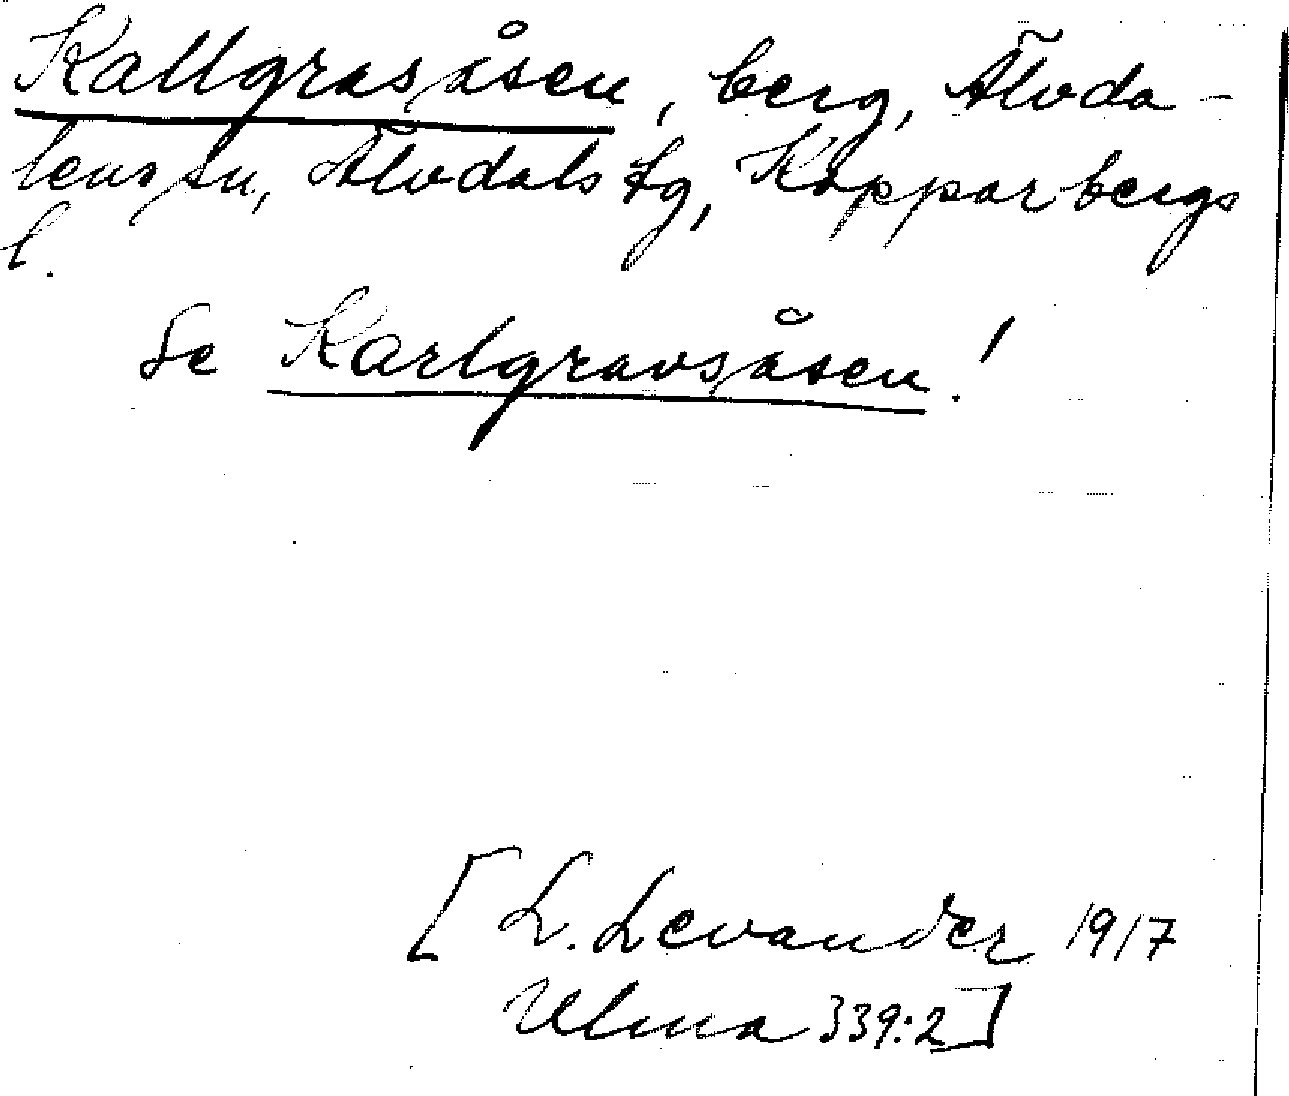 Kallgrasåsen, berg, Älvda-
lens sn, Älvdals tg, Kopparbergs
l.
Se Karlgravsåsen!
[L. Levander 1917
Ulma 339:2]